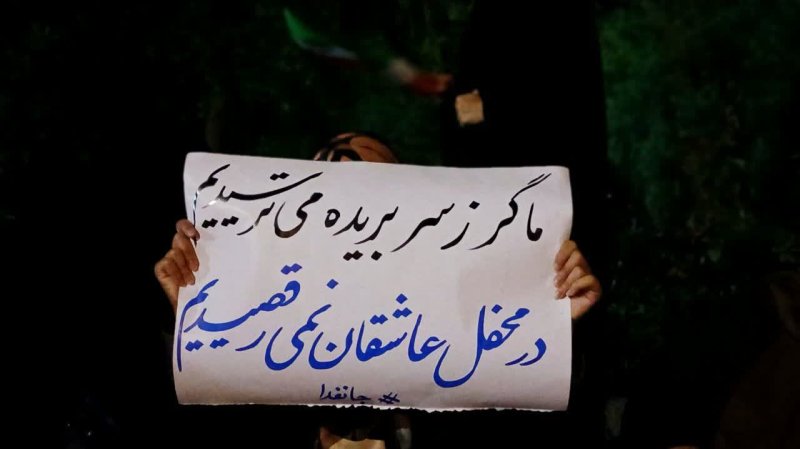 ما گر ز سر بریده می ترسیدیم
در محفل عاشقان نمی رقصیدیم
#جانفدا